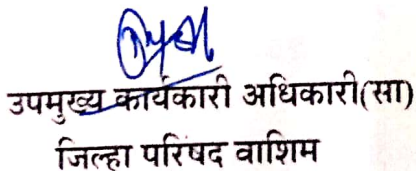 उपमुख्य कार्यकारी अधिकारी(सा)
जिल्हा परिषद वाशिम